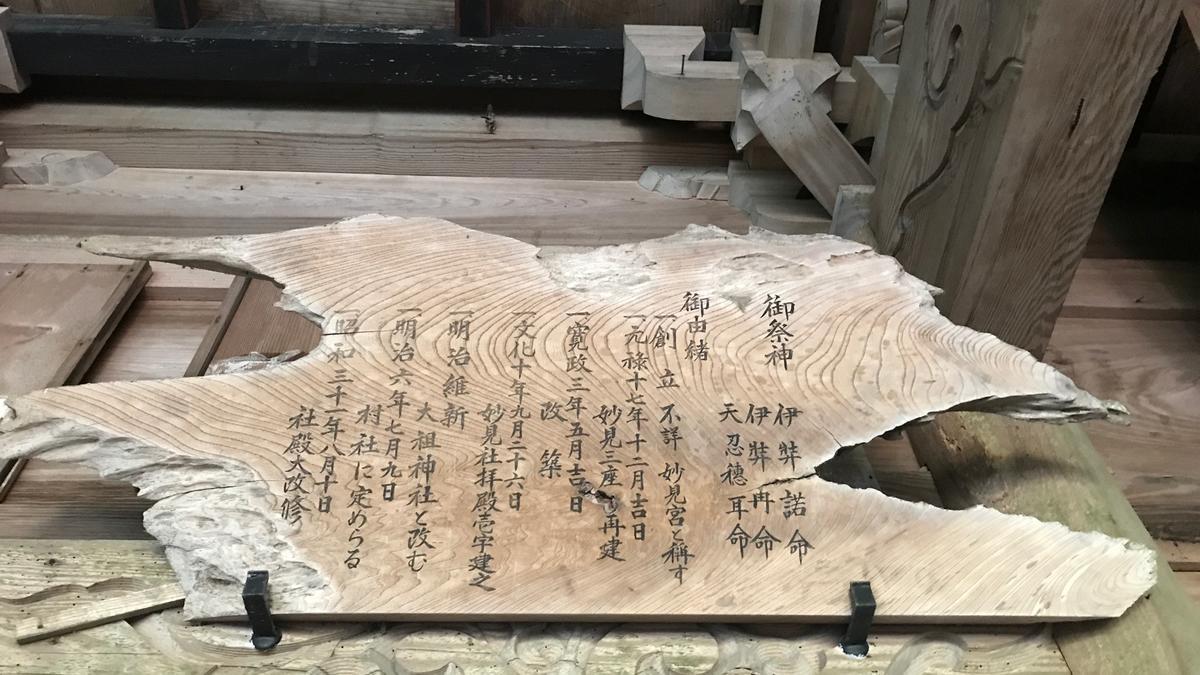 御祭神
伊弉諾命
伊弉冉命
天忍穂耳命
御由緒
一創立 不詳 妙見宮と称す
一元禄十七年十二月吉日
妙見三座再建
一寛政三年五月吉日
改築
一文化十年九月二十六日
妙見社拝殿壱宇建之
一明治維新
大祖神社と改む
一明治六年七月九日
村社に定めらる
一昭和三十一年八月十日
社殿大改修